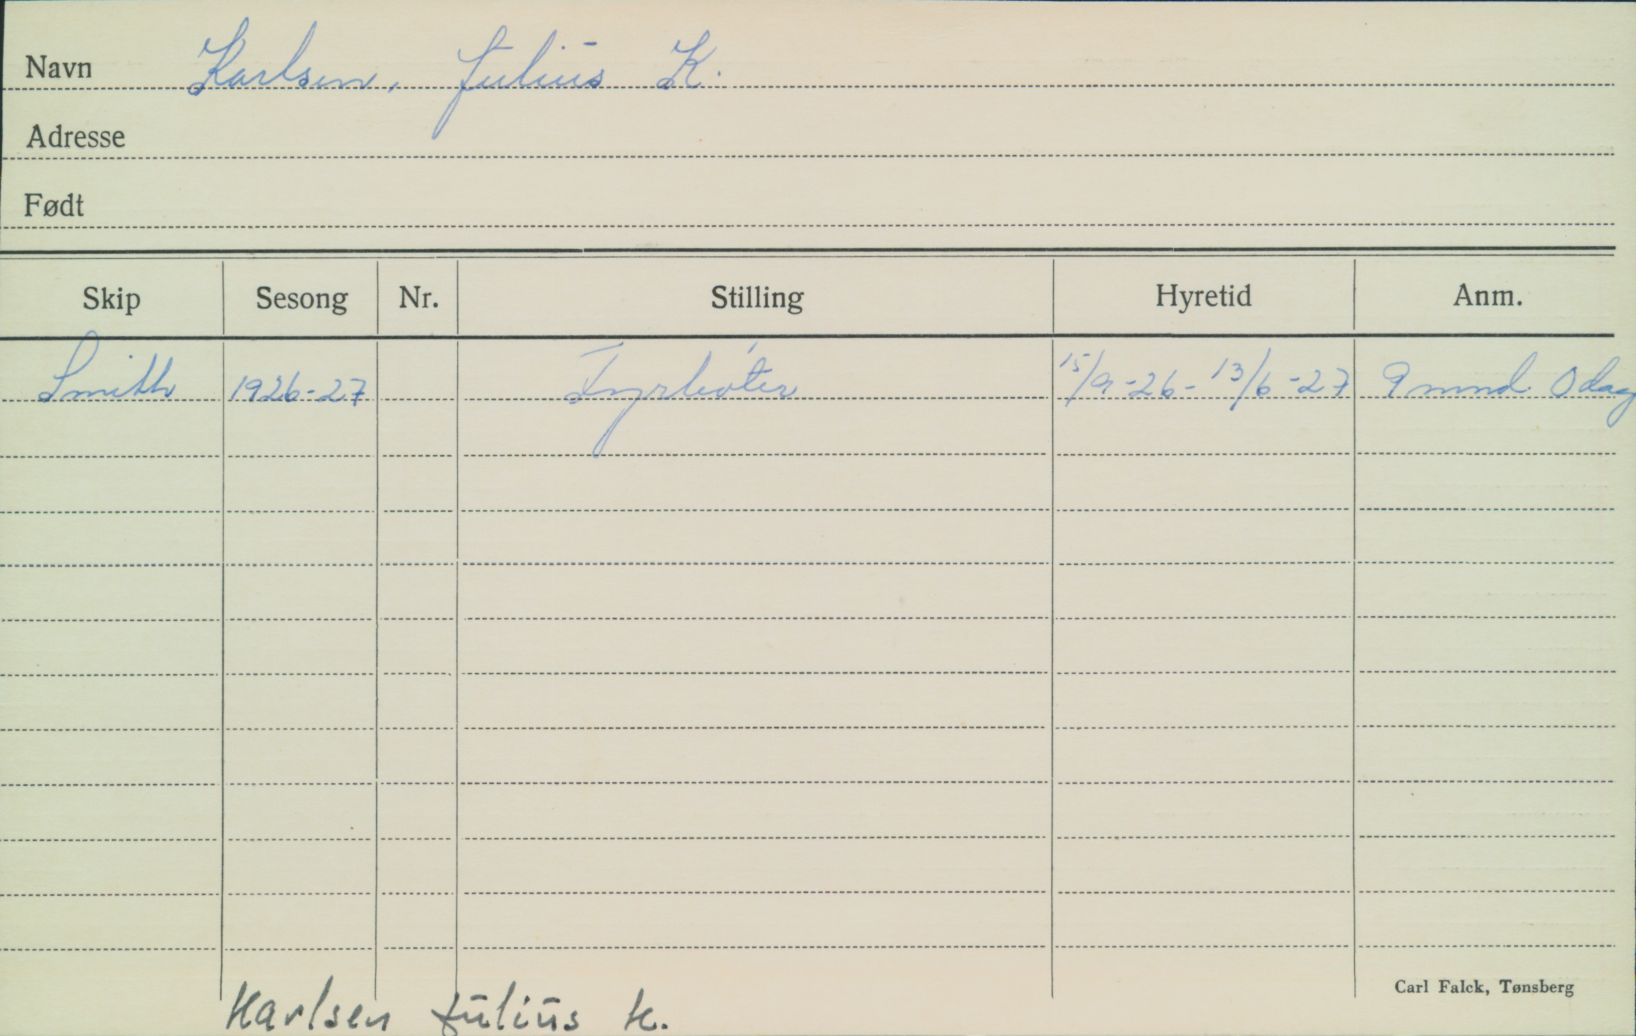 Navn Karlsen, Julius K.
Adresse
Født
Skip Sesong Nr. Stilling Hyretid Anm.
Smith 1926-27 Fyrbøter 15/9-26 - 13/6-27 9 mnd 0 dag
Carl Falck, Tønsberg
Karlsen Julius K.